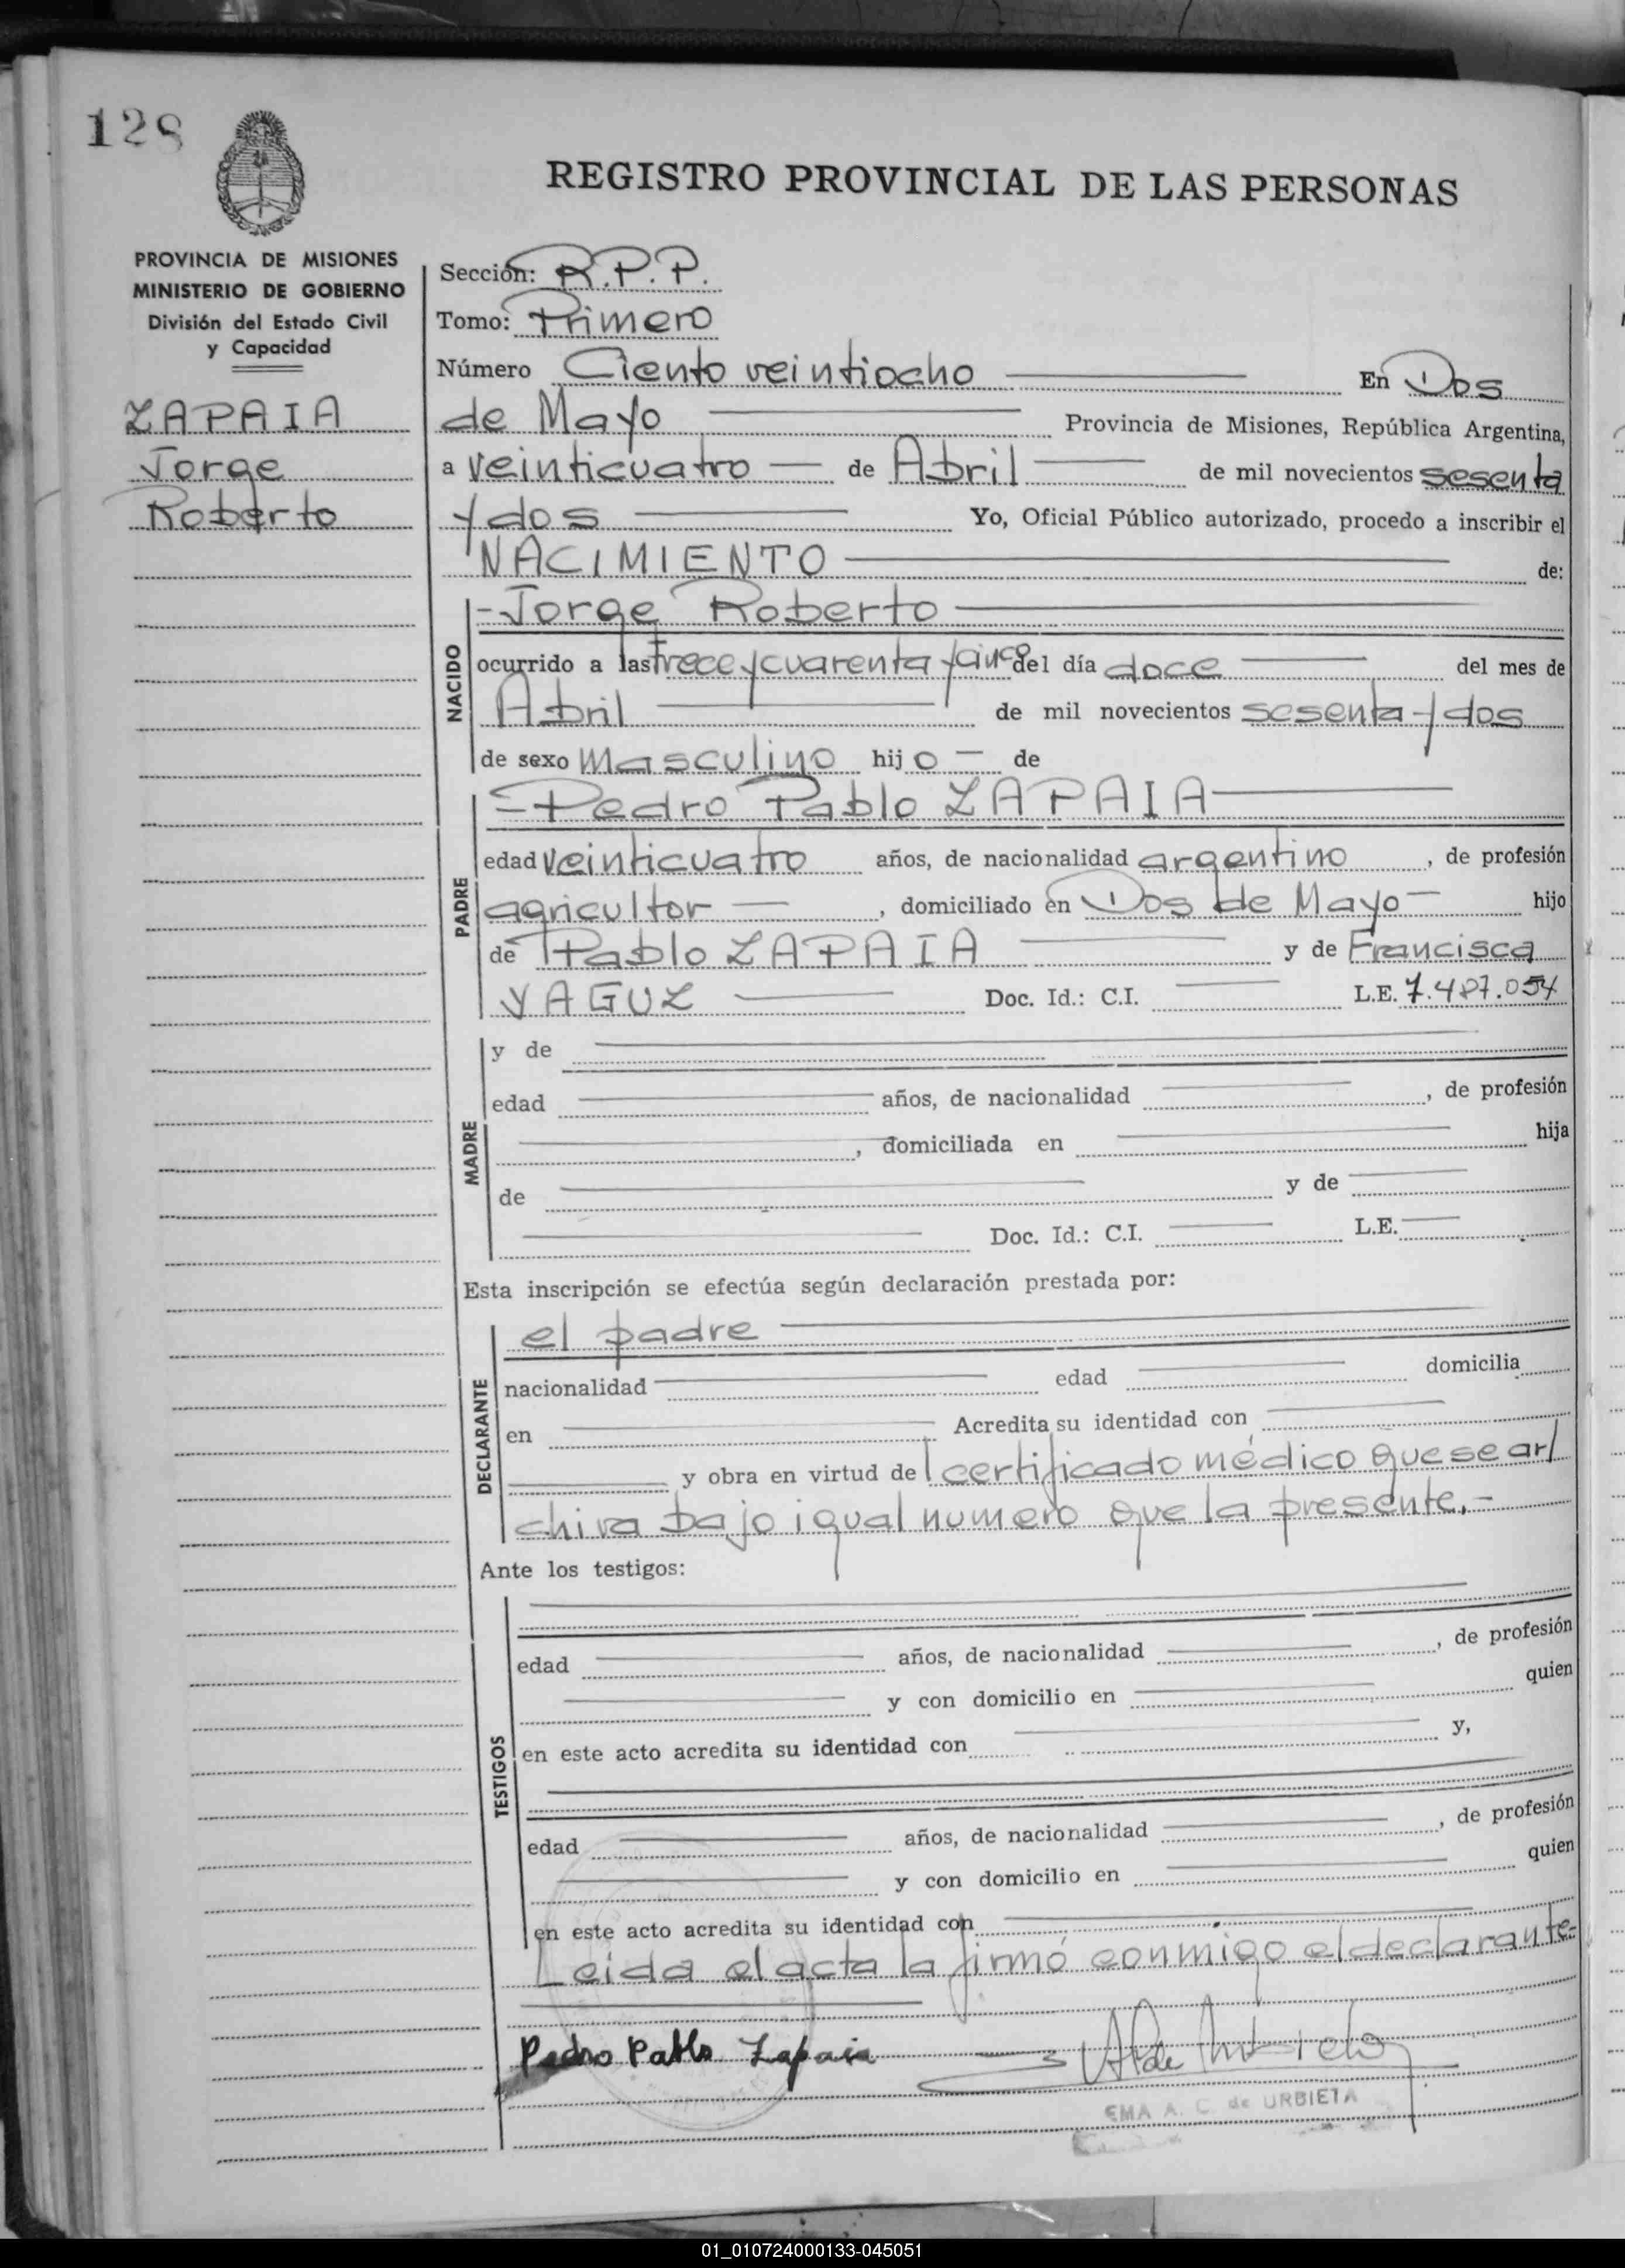 128
REGISTRO PROVINCIAL DE LAS PERSONAS
PROVINCIA DE MISIONES
MINISTERIO DE GOBIERNO
División del Estado Civil
y Capacidad
ZAPAIA
Jorge
Roberto
Sección: R.P.P.
Tomo: Primero
Número Ciento veintiocho En Dos
de Mayo Provincia de Misiones, República Argentina,
a veinticuatro de Abril de mil novecientos sesenta
y dos Yo, Oficial Público autorizado, procedo a inscribir el
NACIMIENTO de:
NACIDO
- Jorge Roberto
ocurrido a las trece y cuarenta y cinco del día doce del mes de
Abril de mil novecientos sesenta y dos
de sexo masculino hijo de
PADRE
- Pedro Pablo ZAPAIA
edad veinticuatro años, de nacionalidad argentino, de profesión
agricultor, domiciliado en Dos de Mayo hijo
de Pablo ZAPAIA y de Francisca
YAGUZ Doc. Id.: C.I. L.E. 7.487.054
MADRE
y de
edad años, de nacionalidad , de profesión
, domiciliada en hija
de y de
Doc. Id.: C.I. L.E.
Esta inscripción se efectúa según declaración prestada por:
DECLARANTE
el padre
nacionalidad edad domicilia
en Acredita su identidad con
y obra en virtud del certificado médico que se ar/
chiva bajo igual numero que la presente.-
Ante los testigos:
TESTIGOS
edad años, de nacionalidad , de profesión
y con domicilio en quien
en este acto acredita su identidad con y,
edad años, de nacionalidad , de profesión
y con domicilio en quien
en este acto acredita su identidad con
Leida el acta la firmó conmigo el declarante.-
Pedro Pablo Zapaia
EMA A. C. de URBIETA
01_010724000133-045051